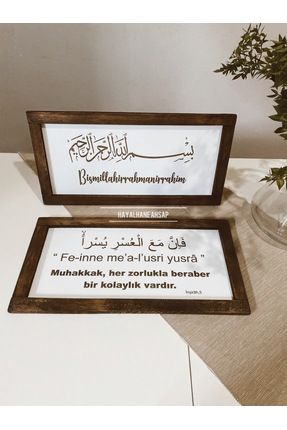 بِسْمِ اللهِ الرَّحْمٰنِ الرَّحِيمِ
Bismillahirrahmanirrahim
HAYALHANEAHSAP
فَاِنَّ مَعَ الْعُسْرِ يُسْراًۙ
“ Fe-inne me’a-l’usri yusrâ ”
Muhakkak, her zorlukla beraber
bir kolaylık vardır.
İnşirâh,5